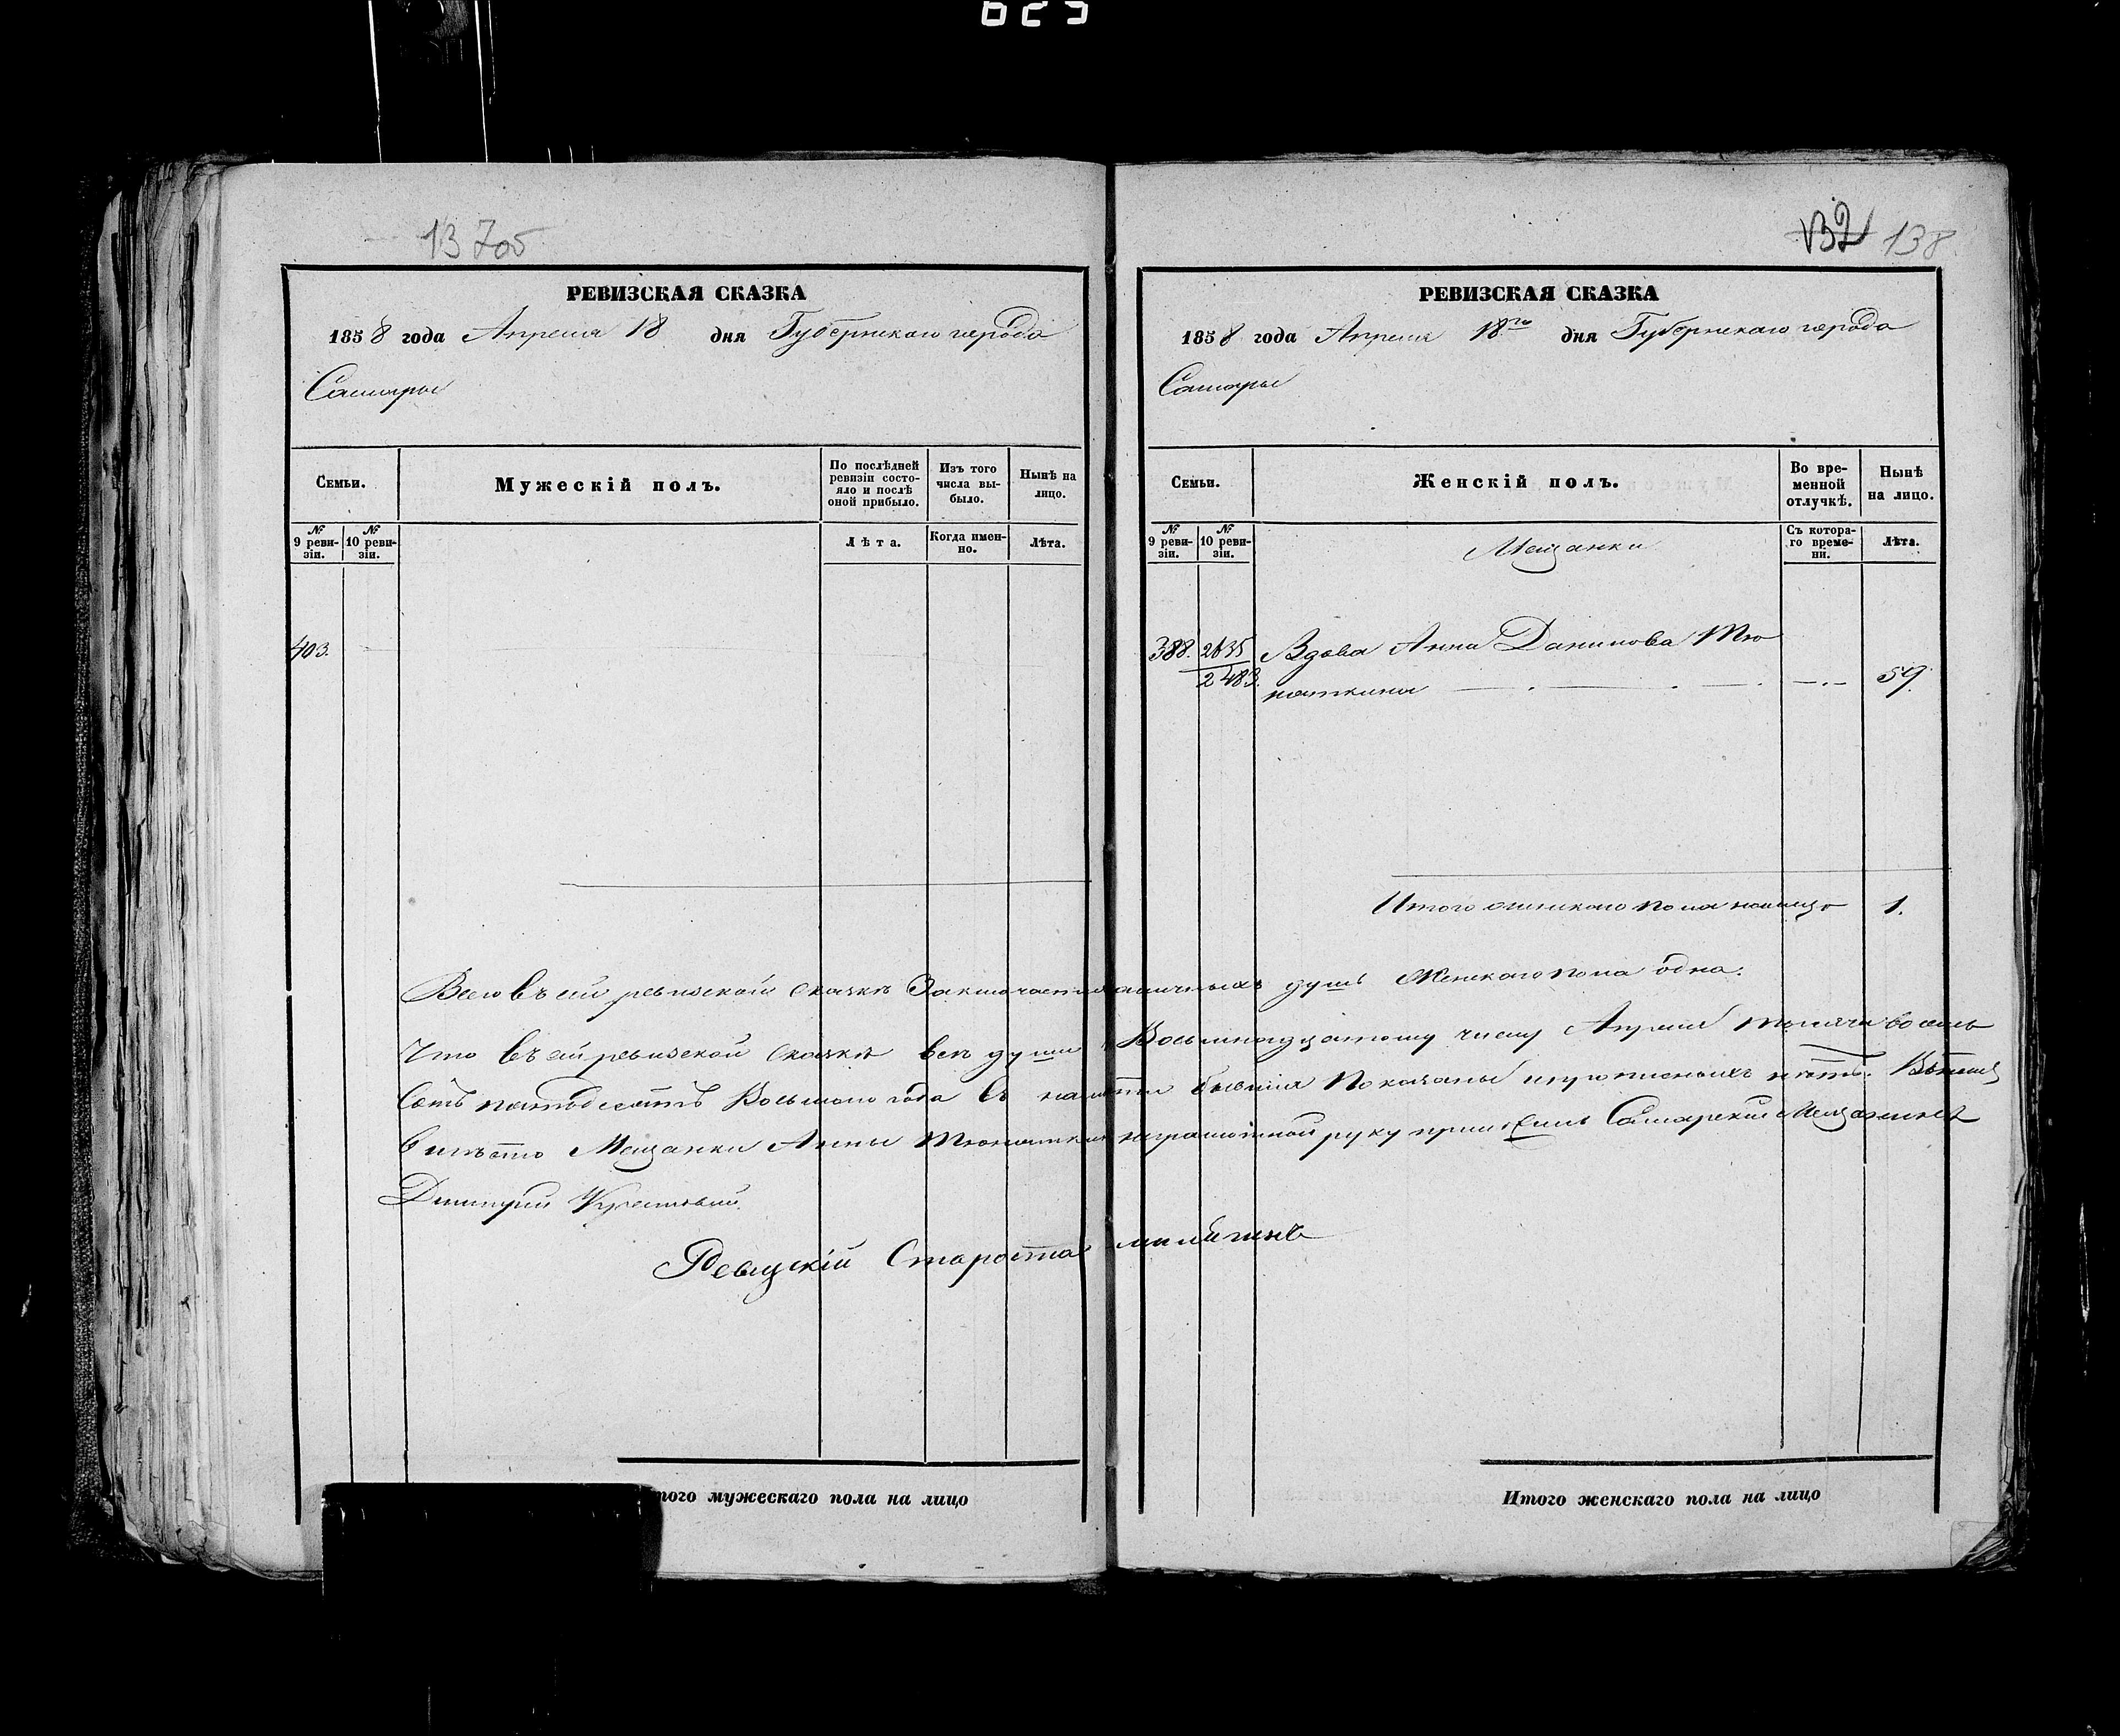 623
13 705
РЕВИЗСКАЯ СКАЗКА
1858 года Апреля 18 дня Губернскаго города
Самары
Семьи.
Мужескій полъ.
По послѣдней ревизіи состо-
яло и послѣ оной прибыло.
Изъ того числа вы-
было.
Нынѣ на лицо.
№ 9 реви-
зіи.
№ 10 реви-
зіи.
Лѣта.
Когда имен-
но.
Лѣта.
403.
132 138
РЕВИЗСКАЯ СКАЗКА
1858 года Апреля 18го дня Губернскаго города
Самары
Семьи.
Женскій полъ.
Во вре-
менной отлучкѣ.
Нынѣ на лицо.
№ 9 реви-
зіи.
№ 10 реви-
зіи.
Мещанки
Съ котора-
го време-
ни.
Лѣта.
388. 2635 Вдова Анна Данилова Тю
2483. паткина 59.
Итого женскаго пола налицо 1.
Всего въ сей ревизской сказкѣ Заключается наличныхъ душъ Женскаго пола одна.
Что въ сей ревизской сказкѣ всѣ души Восьмнадцатому числу Апреля тысяча восемь
Сотъ пятьдесятъ Восьмаго года бывшия Показаны и прописныхъ нѣтъ.
вмѣсто Мещанки Анны неграмотной руку приложилъ Самарский Мещанинъ
Дмитрий
Староста
Итого мужескаго пола на лицо
Итого женскаго пола на лицо